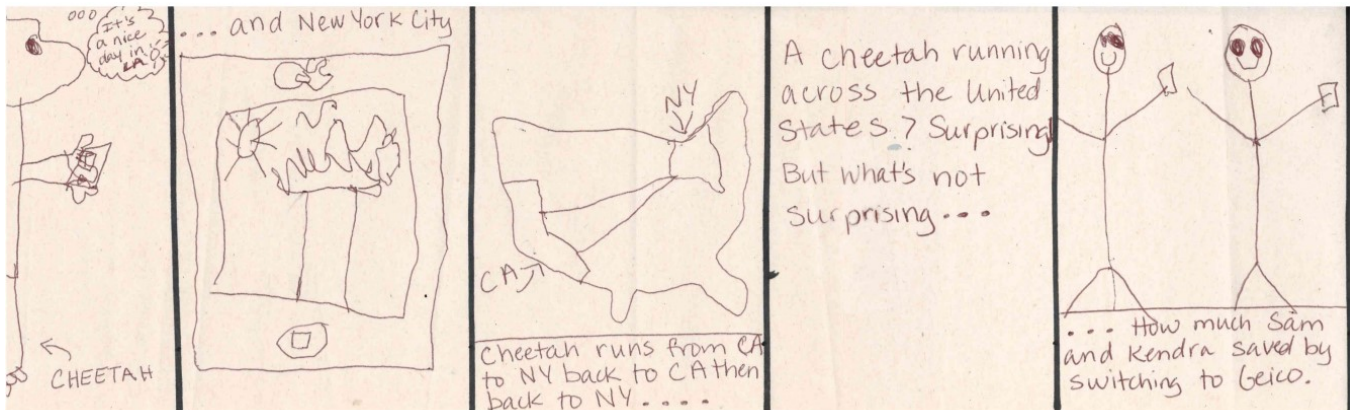 It's
a nice
day in
LA
CHEETAH
... and New York City
NY
CA
Cheetah runs from CA
to NY back to CA then
back to NY ....
A cheetah running
across the United
States? Surprising
But what's not
surprising ...
... How much Sam
and Kendra saved by
switching to Geico.